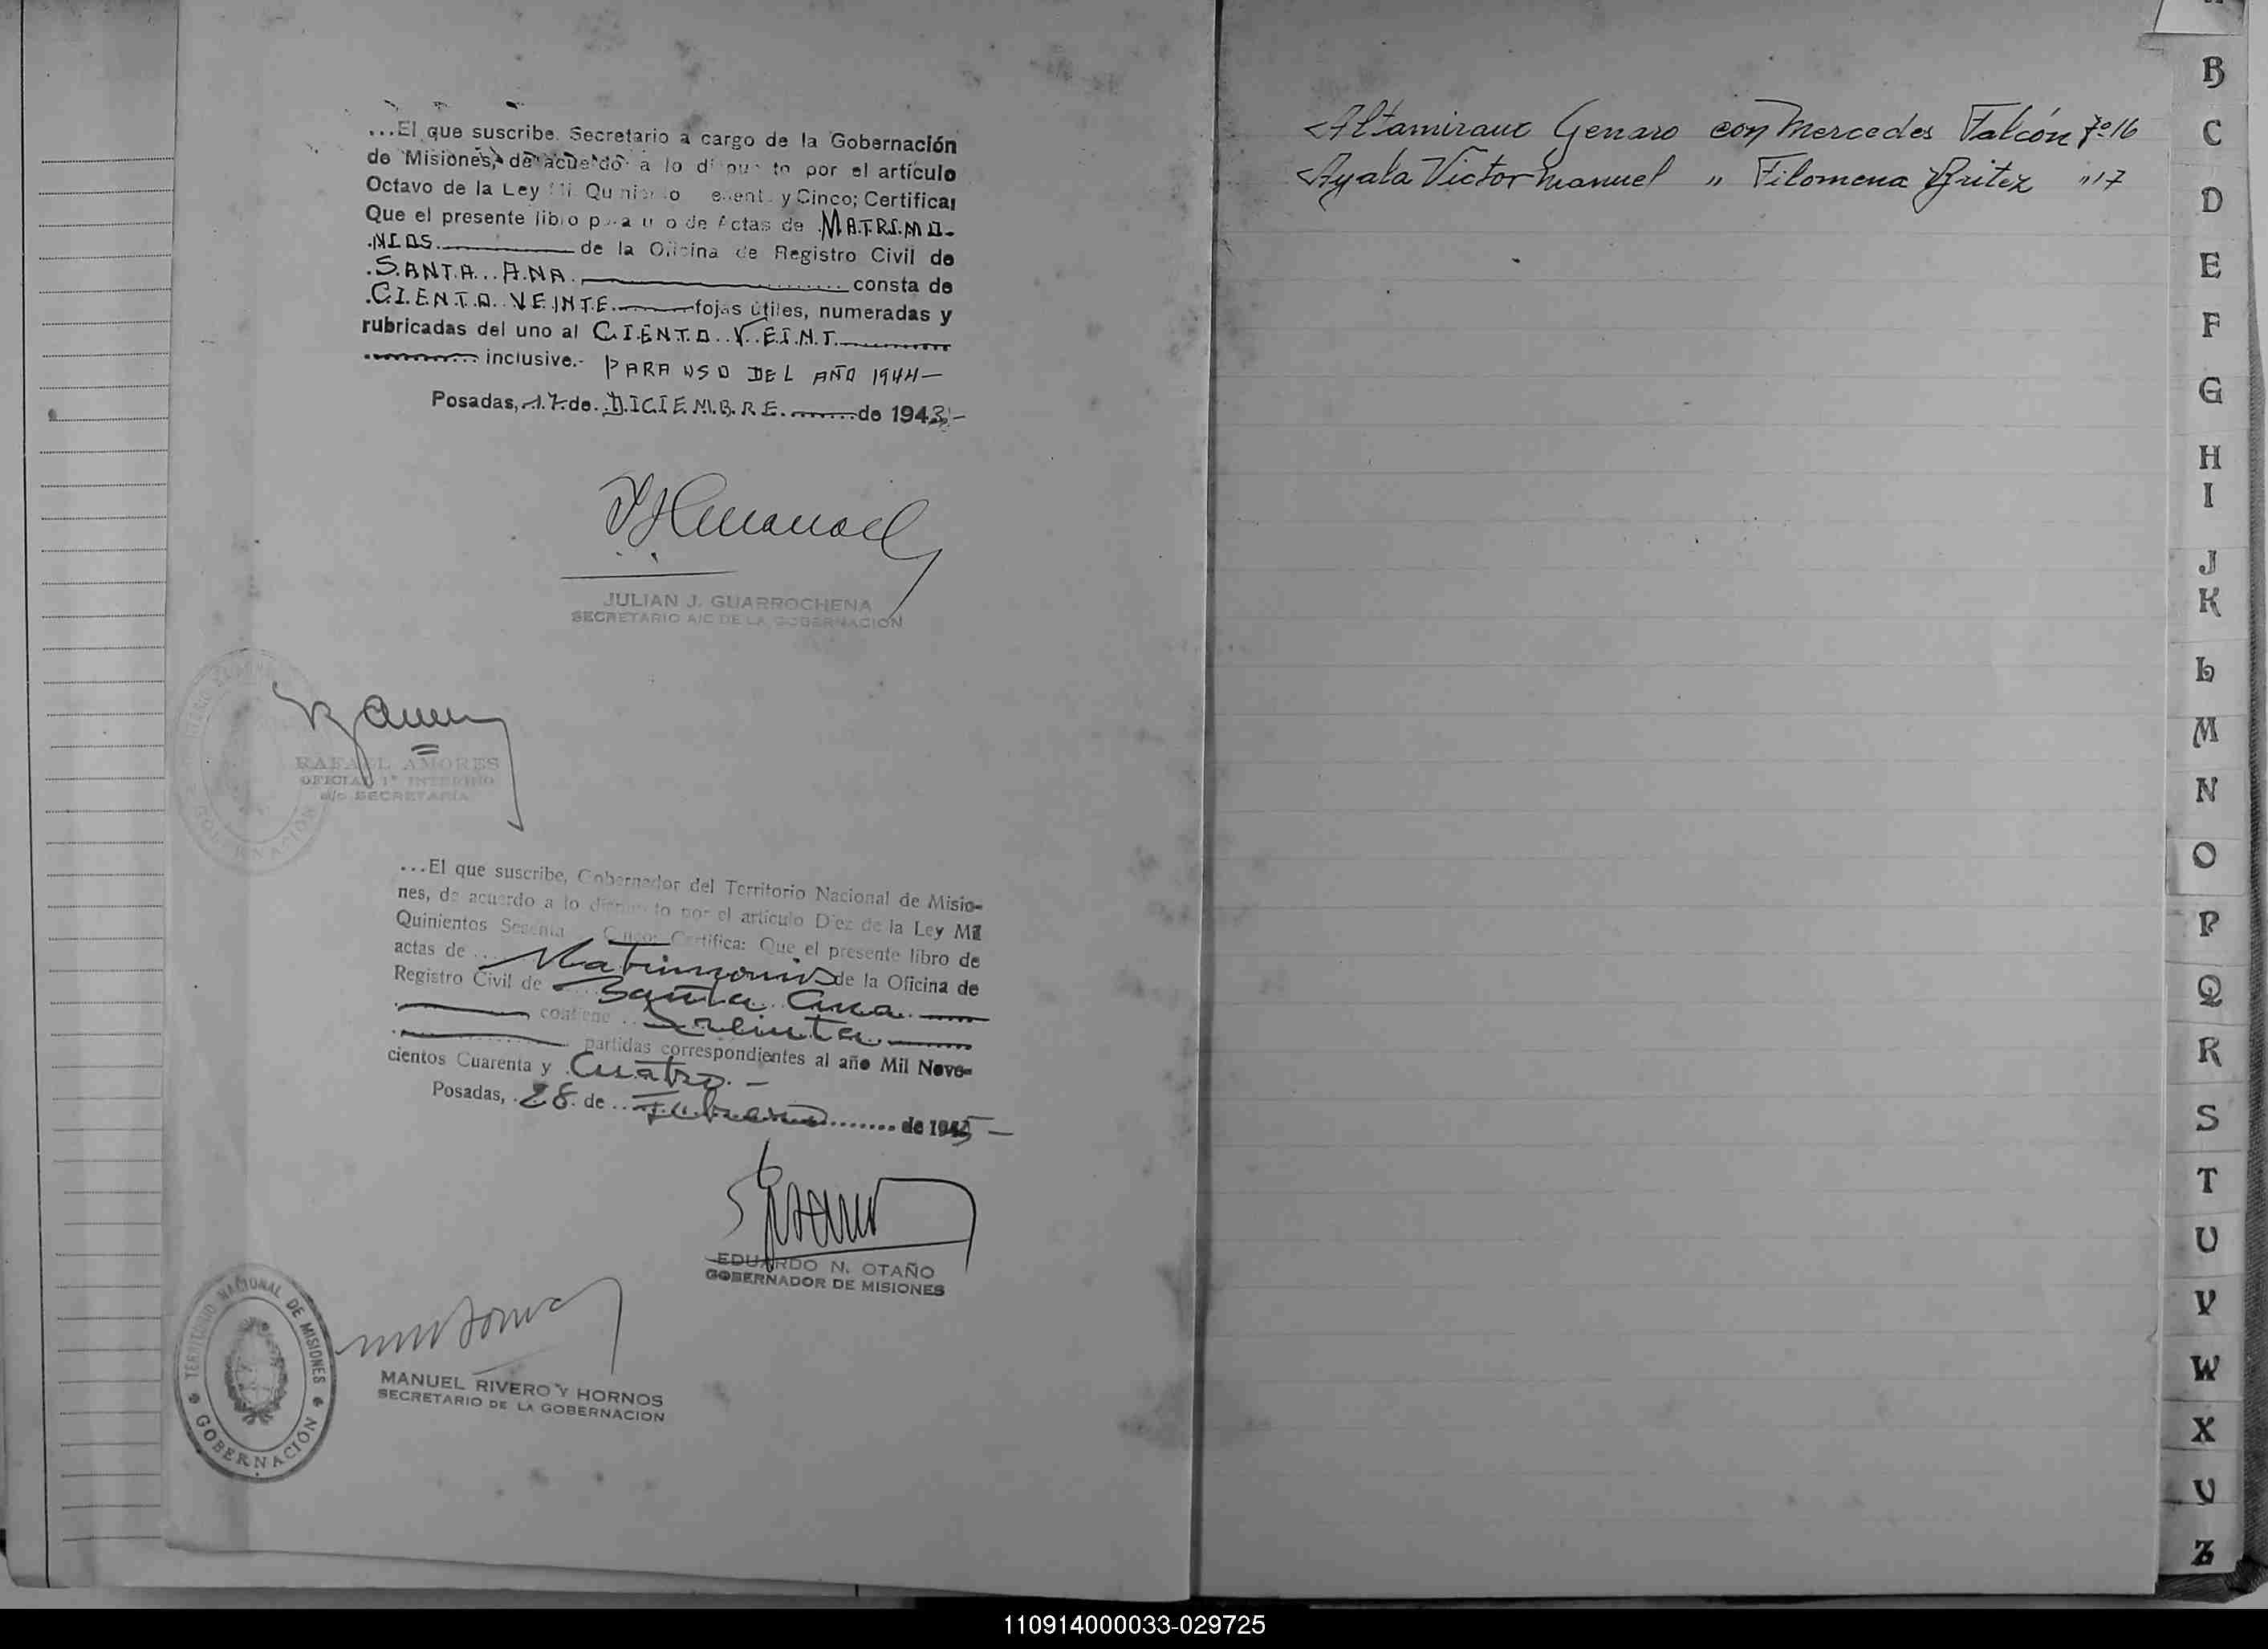 ...El que suscribe, Secretario a cargo de la Gobernación
de Misiones, de acuerdo a lo dispuesto por el artículo
Octavo de la Ley Mil Quinientos Sesenta y Cinco; Certifica:
Que el presente libro para uso de Actas de MATRIMO-
NIOS. de la Oficina de Registro Civil de
SANTA ANA consta de
CIENTO VEINTE fojas útiles, numeradas y
rubricadas del uno al CIENTO VEINT
inclusive.- PARA USO DEL AÑO 1944-
Posadas, 17 de DICIEMBRE de 1943-
JULIAN J. GUARROCHENA
SECRETARIO A/C DE LA GOBERNACION
RAFAEL AMORES
OFICIAL 1º INTERINO
a/c SECRETARIA
...El que suscribe, Gobernador del Territorio Nacional de Misio-
nes, de acuerdo a lo dispuesto por el artículo Diez de la Ley Mil
Quinientos Sesenta Cinco: Certifica: Que el presente libro de
actas de Matrimonios de la Oficina de
Registro Civil de Santa Ana
contiene Treinta
partidas correspondientes al año Mil Nove-
cientos Cuarenta y Cuatro.-
Posadas, 28 de Febrero de 1945-
EDUARDO N. OTAÑO
GOBERNADOR DE MISIONES
TERRITORIO NACIONAL DE MISIONES
GOBERNACIÓN
MANUEL RIVERO Y HORNOS
SECRETARIO DE LA GOBERNACION
Altamirano Genaro con Mercedes Falcón Fº 16
Ayala Victor Manuel " Filomena Britez " 17
B
C
D
E
F
G
H
I
J
K
L
M
N
O
P
Q
R
S
T
U
V
W
X
Y
Z
110914000033-029725